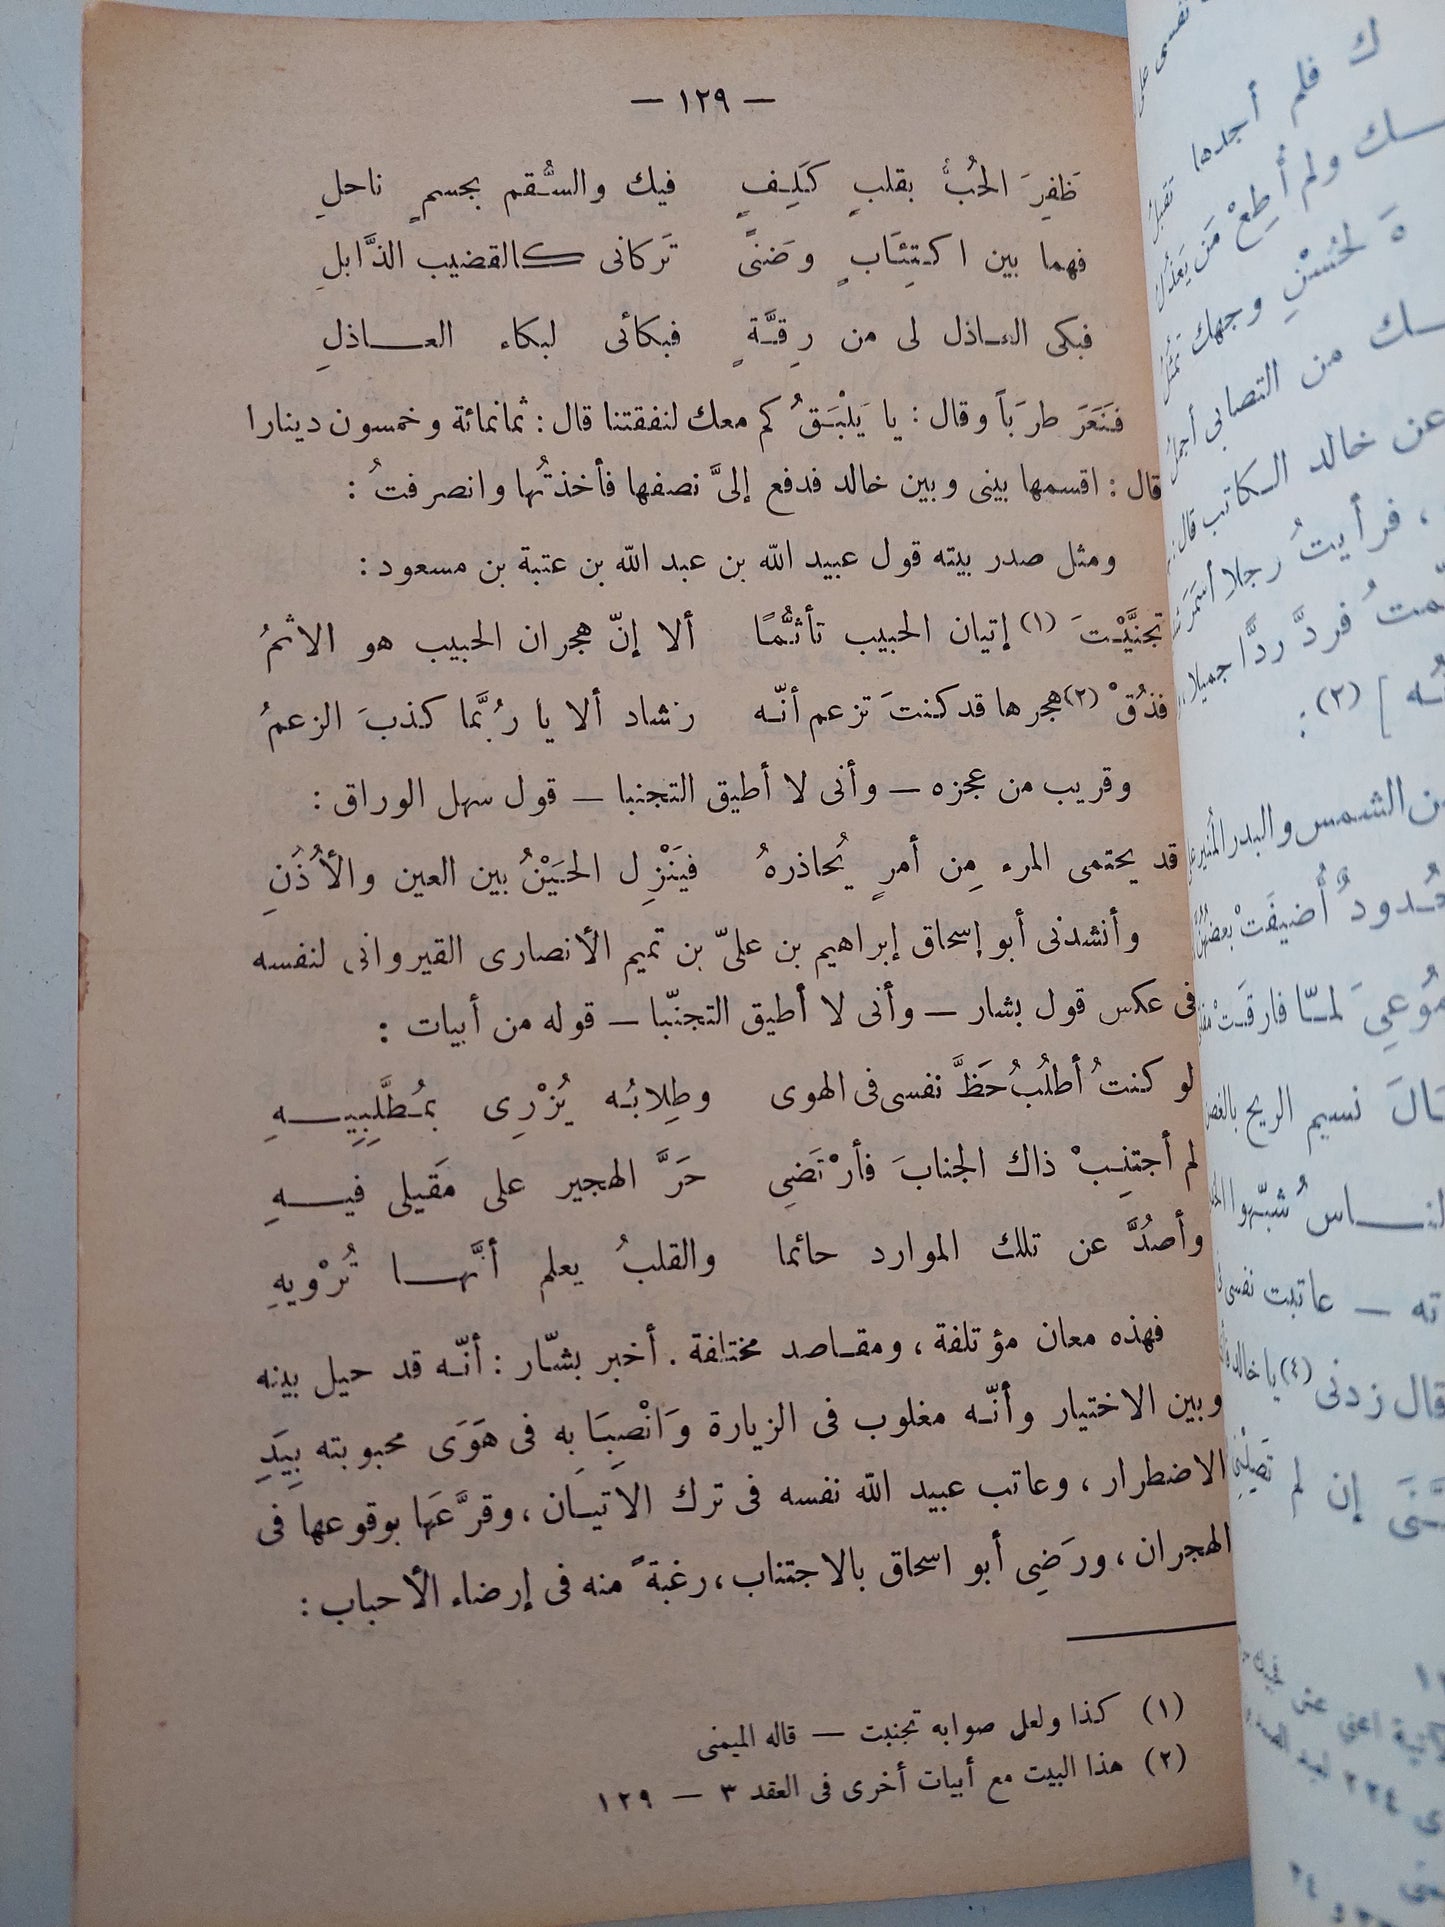 — ١٢٩ —
ظَفِرَ الحُبُّ بقلبٍ كَلِفٍ فيك والسُّقم بجسمٍ ناحلِ
فهما بين اكتِئَابٍ وضَنىً تَركانى كالقضيب الذَّابلِ
فبكى العاذل لى من رِقَّةٍ فبكائى لبكاء العاذلِ
فنَعَرَ طرَباً وقال : يا يَلْبَقُ كم معك لنفقتنا قال : ثمانمائة وخمسون دينارا
قال : اقسمها بينى وبين خالد فدفع إلىَّ نصفها فأخذتُها وانصرفتُ :
ومثل صدر بيته قول عبيد الله بن عبد الله بن عتبة بن مسعود :
تجنيَّتَ (١) إتيان الحبيب تأثُّمًا ألا إنّ هجران الحبيب هو الاثمُ
فذُقْ (٢) هجرها قدكنتَ تزعم أنّه رشاد ألا يا رُبَّما كذبَ الزعمُ
وقريب من عجزه — وأنى لا أطيق التجنبا — قول سهل الوراق :
قد يحتمى المرء مِن أمرٍ يُحاذرهُ فيَنْزِل الحَيْنُ بين العين والأُذُنِ
وأنشدنى أبو إسحاق إبراهيم بن علىّ بن تميم الأنصارى القيروانى لنفسه
فى عكس قول بشار — وأنى لا أطيق التجنّبا — قوله من أبيات :
لو كنتُ أطلُبُ حَظَّ نفسى فى الهوى وطِلابُه يُزْرِى بمُطَّلِبِيهِ
لم أجتنِبْ ذاك الجنابَ فأرْتَضِى حَرَّ الهجير على مَقيلى فيهِ
وأصُدُّ عن تلك الموارد حائما والقلبُ يعلم أنَّها تُرْويهِ
فهذه معان مؤتلفة ، ومقاصد مختلفة . أخبر بشّار : أنّه قد حيل بينه
وبين الاختيار وأنّه مغلوب فى الزيارة وَانْصِبَابِه فى هَوَى محبوبته بِيَدِ
الاضطرار ، وعاتب عبيد الله نفسه فى ترك الاتيان ، وقرَّعَها بوقوعها فى
الهجران ، ورَضِى أبو اسحاق بالاجتناب ، رغبةً منه فى إرضاء الأحباب :
(١) كذا ولعل صوابه تجنبت — قاله الميمنى
(٢) هذا البيت مع أبيات أخرى فى العقد ٣ — ١٢٩
ك فلم أجدها تقبل
سك ولم أُطِعْ مَن يَعذُلك
ةَ لحُسْنِ وجهك تمثُلُ
سك من التصابى أجملُ
عن خالد الكاتب قال :
، فرأيتُ رجلا أسمَرَ
فردَّ ردًّا جميلا
(٢) :
ن الشمس والبدر المُنير
ـدودٌ أُضيفَتْ بعضهنّ
لمّا فارقَتْ
نسيم الريح بالغصن
شبّهوا
ته — عاتبت نفسى
قال زدنى (٤) يا خالد
إن لم تَصِلْنى